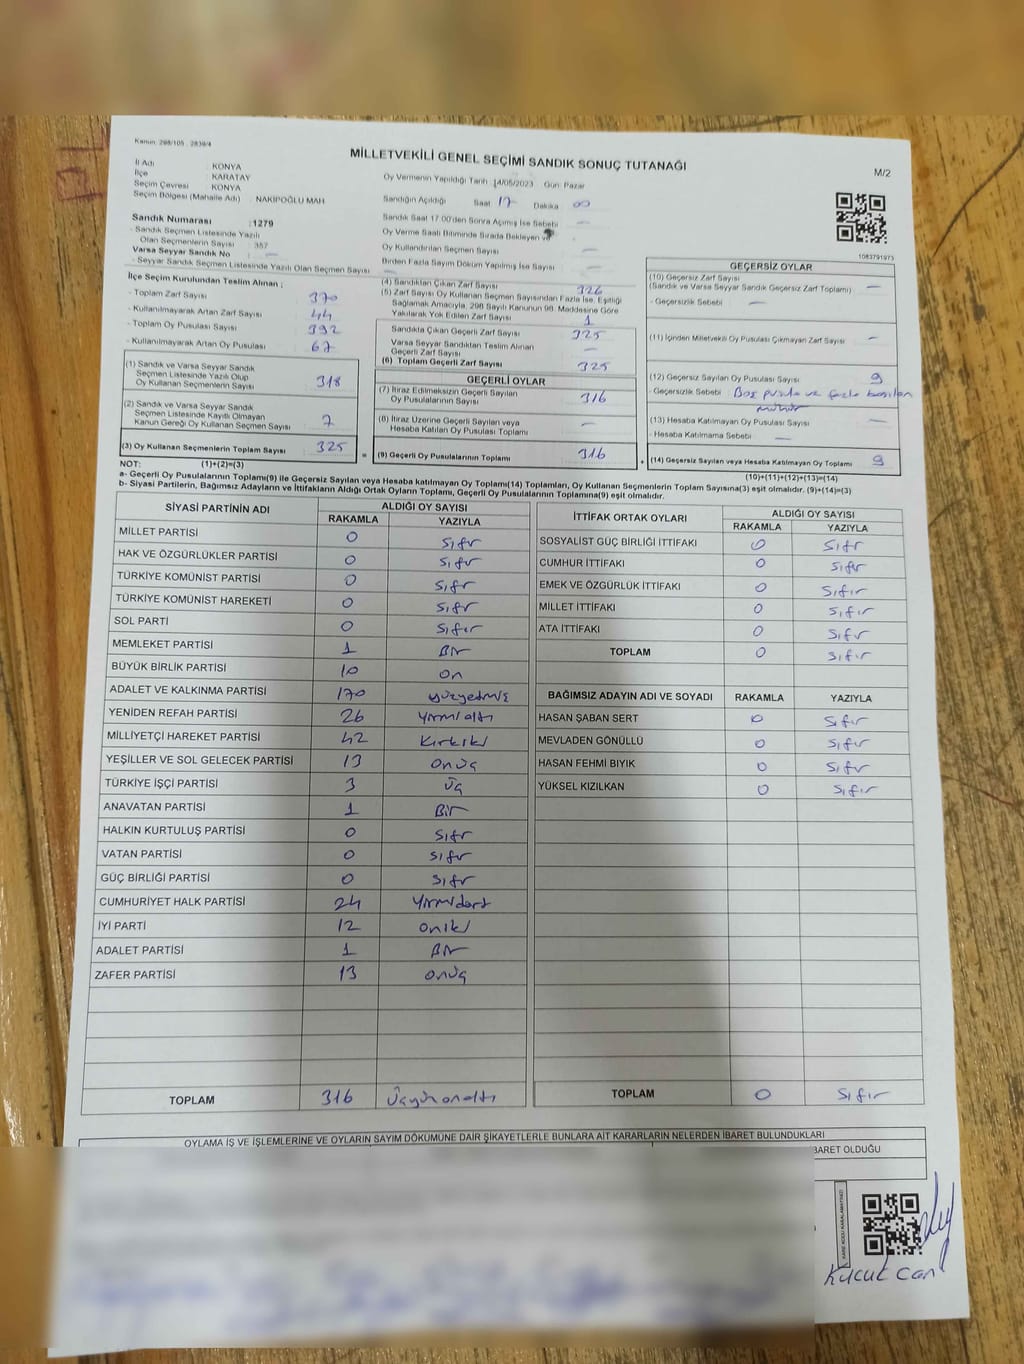 Kanun: 298/105 - 2839/4
MİLLETVEKİLİ GENEL SEÇİMİ SANDIK SONUÇ TUTANAĞI
M/2
İl Adı : KONYA
İlçe KARATAY
Seçim Çevresi : KONYA
Seçim Bölgesi (Mahalle Adı) NAKIPOĞLU MAH
Sandık Numarası :1279
- Sandık Seçmen Listesinde Yazılı
Olan Seçmenlerin Sayısı : 357
Varsa Seyyar Sandık No —
- Seyyar Sandık Seçmen Listesinde Yazılı Olan Seçmen Sayısı —
Oy Vermenin Yapıldığı Tarih 14/05/2023 Gün: Pazar
Sandığın Açıldığı Saat 17 Dakika 00
Sandık Saat 17.00'den Sonra Açılmış İse Sebebi —
Oy Verme Saati Bitiminde Sırada Bekleyen ve
Oy Kullandırılan Seçmen Sayısı —
Birden Fazla Sayım Döküm Yapılmış İse Sayısı —
1083791973
İlçe Seçim Kurulundan Teslim Alınan ;
- Toplam Zarf Sayısı 370
- Kullanılmayarak Artan Zarf Sayısı 44
- Toplam Oy Pusulası Sayısı 392
- Kullanılmayarak Artan Oy Pusulası 67
(1) Sandık ve Varsa Seyyar Sandık
Seçmen Listesinde Yazılı Olup
Oy Kullanan Seçmenlerin Sayısı 318
(2) Sandık ve Varsa Seyyar Sandık
Seçmen Listesinde Kayıtlı Olmayan
Kanun Gereği Oy Kullanan Seçmen Sayısı 7
(3) Oy Kullanan Seçmenlerin Toplam Sayısı 325
(4) Sandıktan Çıkan Zarf Sayısı 326
(5) Zarf Sayısı Oy Kullanan Seçmen Sayısından Fazla İse, Eşitliği
Sağlamak Amacıyla, 298 Sayılı Kanunun 98. Maddesine Göre
Yakılarak Yok Edilen Zarf Sayısı 1
Sandıkta Çıkan Geçerli Zarf Sayısı 325
Varsa Seyyar Sandıktan Teslim Alınan
Geçerli Zarf Sayısı —
(6) Toplam Geçerli Zarf Sayısı 325
GEÇERLİ OYLAR
(7) İtiraz Edilmeksizin Geçerli Sayılan
Oy Pusulalarının Sayısı 316
(8) İtiraz Üzerine Geçerli Sayılan veya
Hesaba Katılan Oy Pusulası Toplamı —
= (9) Geçerli Oy Pusulalarının Toplamı 316
GEÇERSİZ OYLAR
(10) Geçersiz Zarf Sayısı
(Sandık ve Varsa Seyyar Sandık Geçersiz Zarf Toplamı) —
- Geçersizlik Sebebi : —
(11) İçinden Milletvekili Oy Pusulası Çıkmayan Zarf Sayısı —
(12) Geçersiz Sayılan Oy Pusulası Sayısı 9
- Geçersizlik Sebebi : Boş pusula ve fazla basılan
mühür
(13) Hesaba Katılmayan Oy Pusulası Sayısı —
- Hesaba Katılmama Sebebi : —
+ (14) Geçersiz Sayılan veya Hesaba Katılmayan Oy Toplamı 9
NOT: (1)+(2)=(3) (10)+(11)+(12)+(13)=(14)
a- Geçerli Oy Pusulalarının Toplamı(9) ile Geçersiz Sayılan veya Hesaba katılmayan Oy Toplamı(14) Toplamları, Oy Kullanan Seçmenlerin Toplam Sayısına(3) eşit olmalıdır. (9)+(14)=(3)
b- Siyasi Partilerin, Bağımsız Adayların ve İttifakların Aldığı Ortak Oyların Toplamı, Geçerli Oy Pusulalarının Toplamına(9) eşit olmalıdır.
SİYASİ PARTİNİN ADI ALDIĞI OY SAYISI
RAKAMLA YAZIYLA
MİLLET PARTİSİ 0 Sıfır
HAK VE ÖZGÜRLÜKLER PARTİSİ 0 Sıfır
TÜRKİYE KOMÜNİST PARTİSİ 0 Sıfır
TÜRKİYE KOMÜNİST HAREKETİ 0 Sıfır
SOL PARTİ 0 Sıfır
MEMLEKET PARTİSİ 1 Bir
BÜYÜK BİRLİK PARTİSİ 10 on
ADALET VE KALKINMA PARTİSİ 170 yüzyetmiş
YENİDEN REFAH PARTİSİ 26 Yirmialtı
MİLLİYETÇİ HAREKET PARTİSİ 42 Kırkiki
YEŞİLLER VE SOL GELECEK PARTİSİ 13 onüç
TÜRKİYE İŞÇİ PARTİSİ 3 Üç
ANAVATAN PARTİSİ 1 Bir
HALKIN KURTULUŞ PARTİSİ 0 Sıfır
VATAN PARTİSİ 0 Sıfır
GÜÇ BİRLİĞİ PARTİSİ 0 Sıfır
CUMHURİYET HALK PARTİSİ 24 Yirmidört
İYİ PARTİ 12 oniki
ADALET PARTİSİ 1 Bir
ZAFER PARTİSİ 13 onüç
TOPLAM 316 Üçyüzonaltı
İTTİFAK ORTAK OYLARI ALDIĞI OY SAYISI
RAKAMLA YAZIYLA
SOSYALİST GÜÇ BİRLİĞİ İTTİFAKI 0 Sıfır
CUMHUR İTTİFAKI 0 Sıfır
EMEK VE ÖZGÜRLÜK İTTİFAKI 0 Sıfır
MİLLET İTTİFAKI 0 Sıfır
ATA İTTİFAKI 0 Sıfır
TOPLAM 0 Sıfır
BAĞIMSIZ ADAYIN ADI VE SOYADI RAKAMLA YAZIYLA
HASAN ŞABAN SERT 0 Sıfır
MEVLADEN GÖNÜLLÜ 0 Sıfır
HASAN FEHMİ BIYIK 0 Sıfır
YÜKSEL KIZILKAN 0 Sıfır
TOPLAM 0 Sıfır
OYLAMA İŞ VE İŞLEMLERİNE VE OYLARIN SAYIM DÖKÜMÜNE DAİR ŞİKAYETLERLE BUNLARA AİT KARARLARIN NELERDEN İBARET BULUNDUKLARI
BARET OLDUĞU